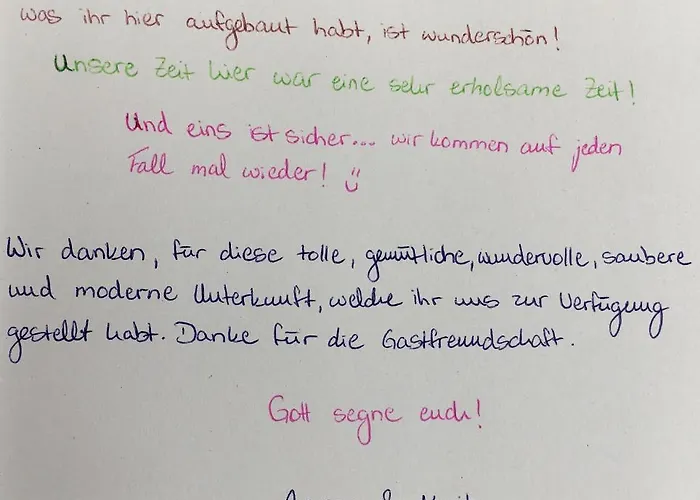 was ihr hier aufgebaut habt, ist wunderschön!
Unsere Zeit hier war eine sehr erholsame Zeit!
Und eins ist sicher... wir kommen auf jeden
Fall mal wieder! :)
Wir danken, für diese tolle, gemütliche, wundervolle, saubere
und moderne Unterkunft, welche ihr uns zur Verfügung
gestellt habt. Danke für die Gastfreundschaft.
Gott segne euch!